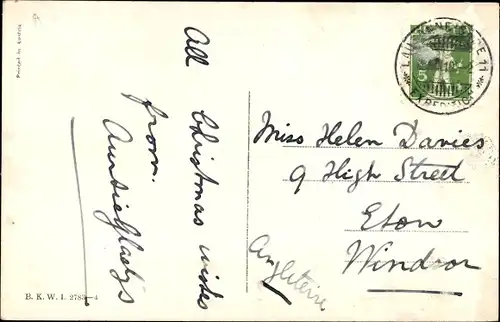 All Christmas wishes
from
Auntie Gladys
Miss Helen Davies
9 High Street
Eton
Windsor
Angleterre
5
11
EXPEDITION
B. K. W. I. 2783-4
Printed in Austria